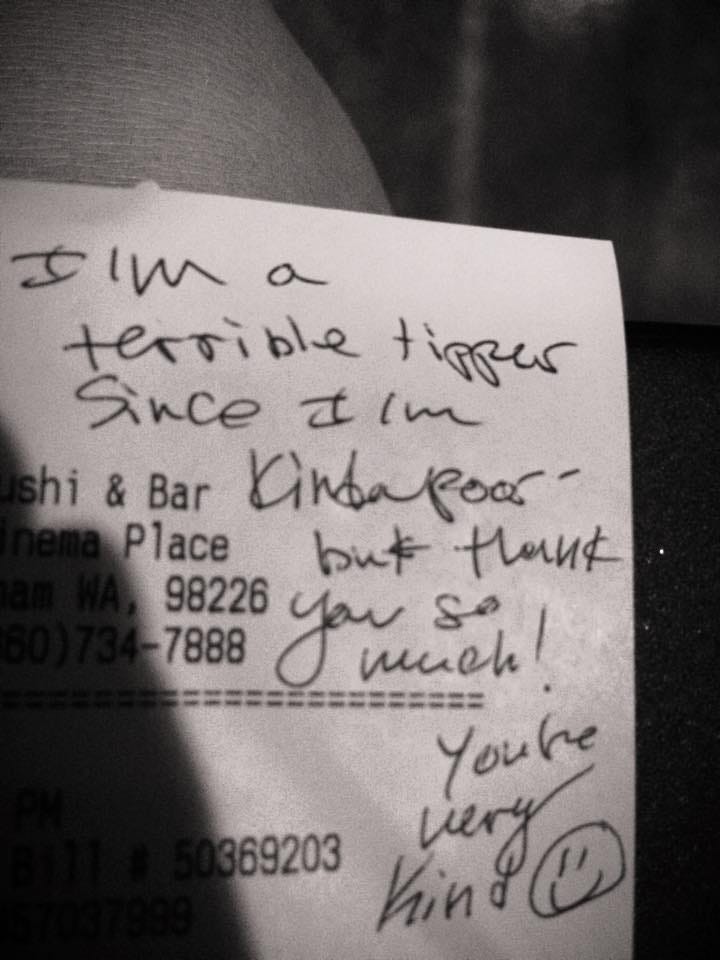 I'm a
terrible tipper
Since I'm
ushi & Bar Kinba poor -
inema Place but thank
ham WA, 98226 you so
60)734-7888 much!
================================
You're
very
PM
Bill # 50369203 Kind
57037999